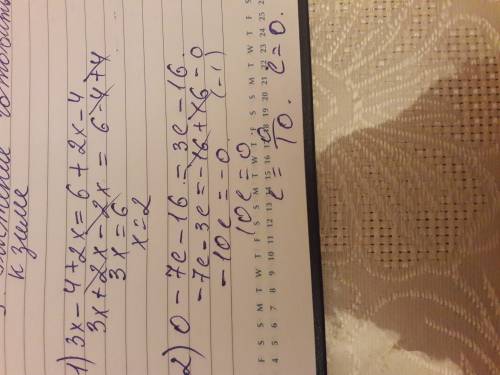 к зиме
1) 3x - 4 + 2x = 6 + 2x - 4
3x + 2x - 2x = 6 - 4 + 4
3x = 6
x = 2
2) 0 - 7c - 16 = 3c - 16
-7c - 3c = -16 + 16 = 0
-10c = -0 (-1)
10c = 0
c = 0/10. c = 0.
F S S M T W T F S S M T W T F S S M T W T F S
4 5 6 7 8 9 10 11 12 13 14 15 16 17 18 19 20 21 22 23 24 25